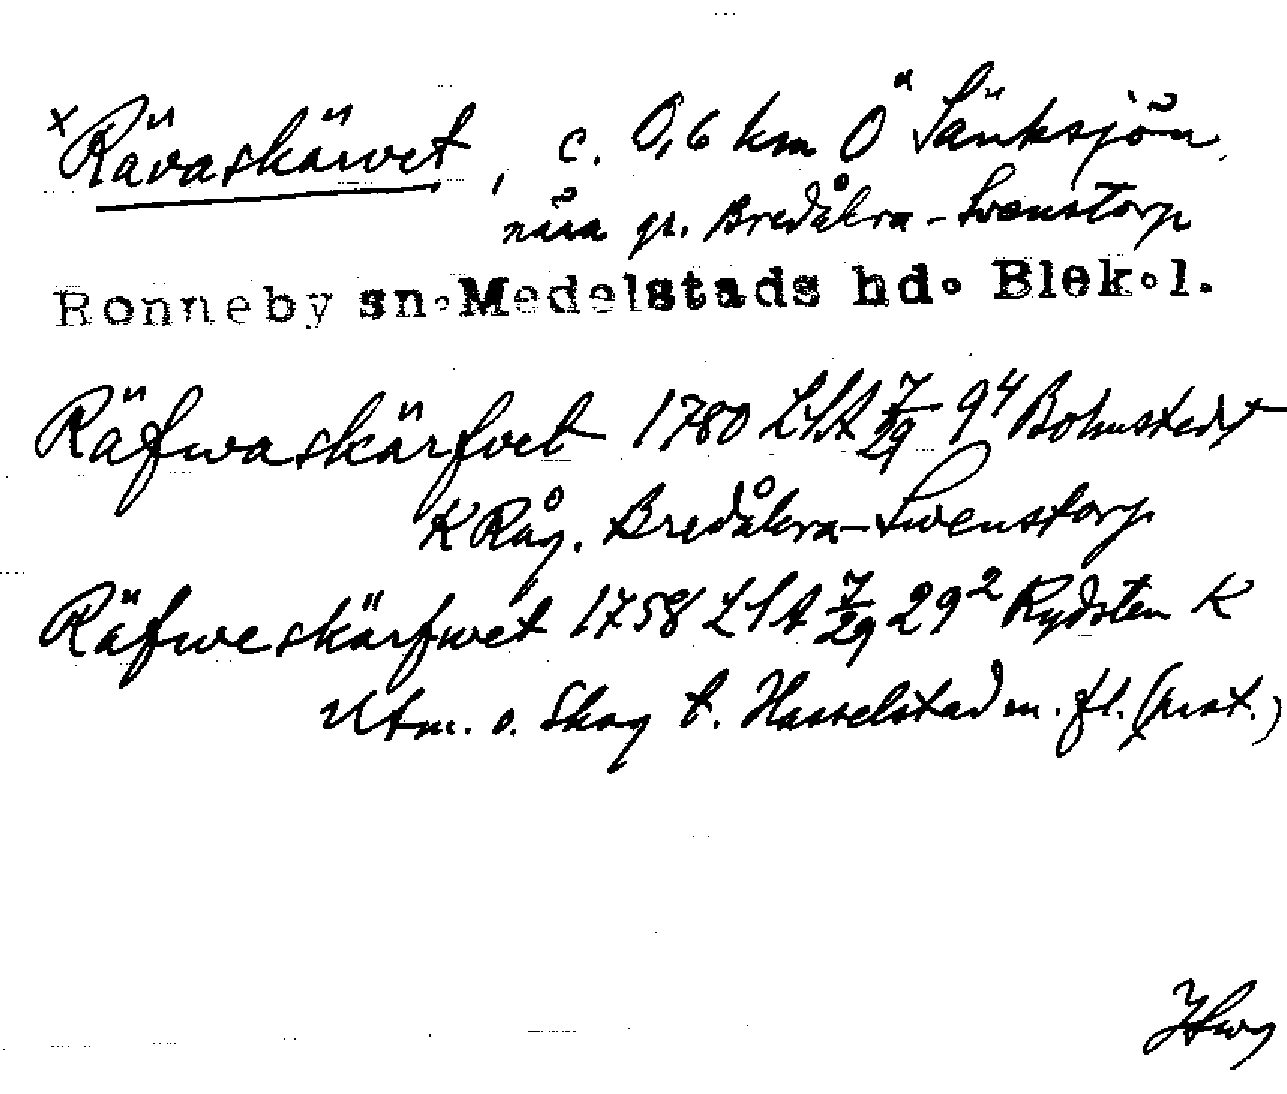 x Rävaskärvet, c. 0,6 km Ö Sänksjön,
nära gr. Bredåkra-Svenstorp
Ronneby sn. Medelstads hd. Blek. l.
Räfwaskärfvet 1780 LSA 7/29 9⁴ Bohnstedt
K Råg. Bredåkra-Swenstorp
Räfweskärfwet 1758 LSA 7/29 29² Rydsten K
Utm. o. Skog t. Hasselstad m. fl. (avst.)